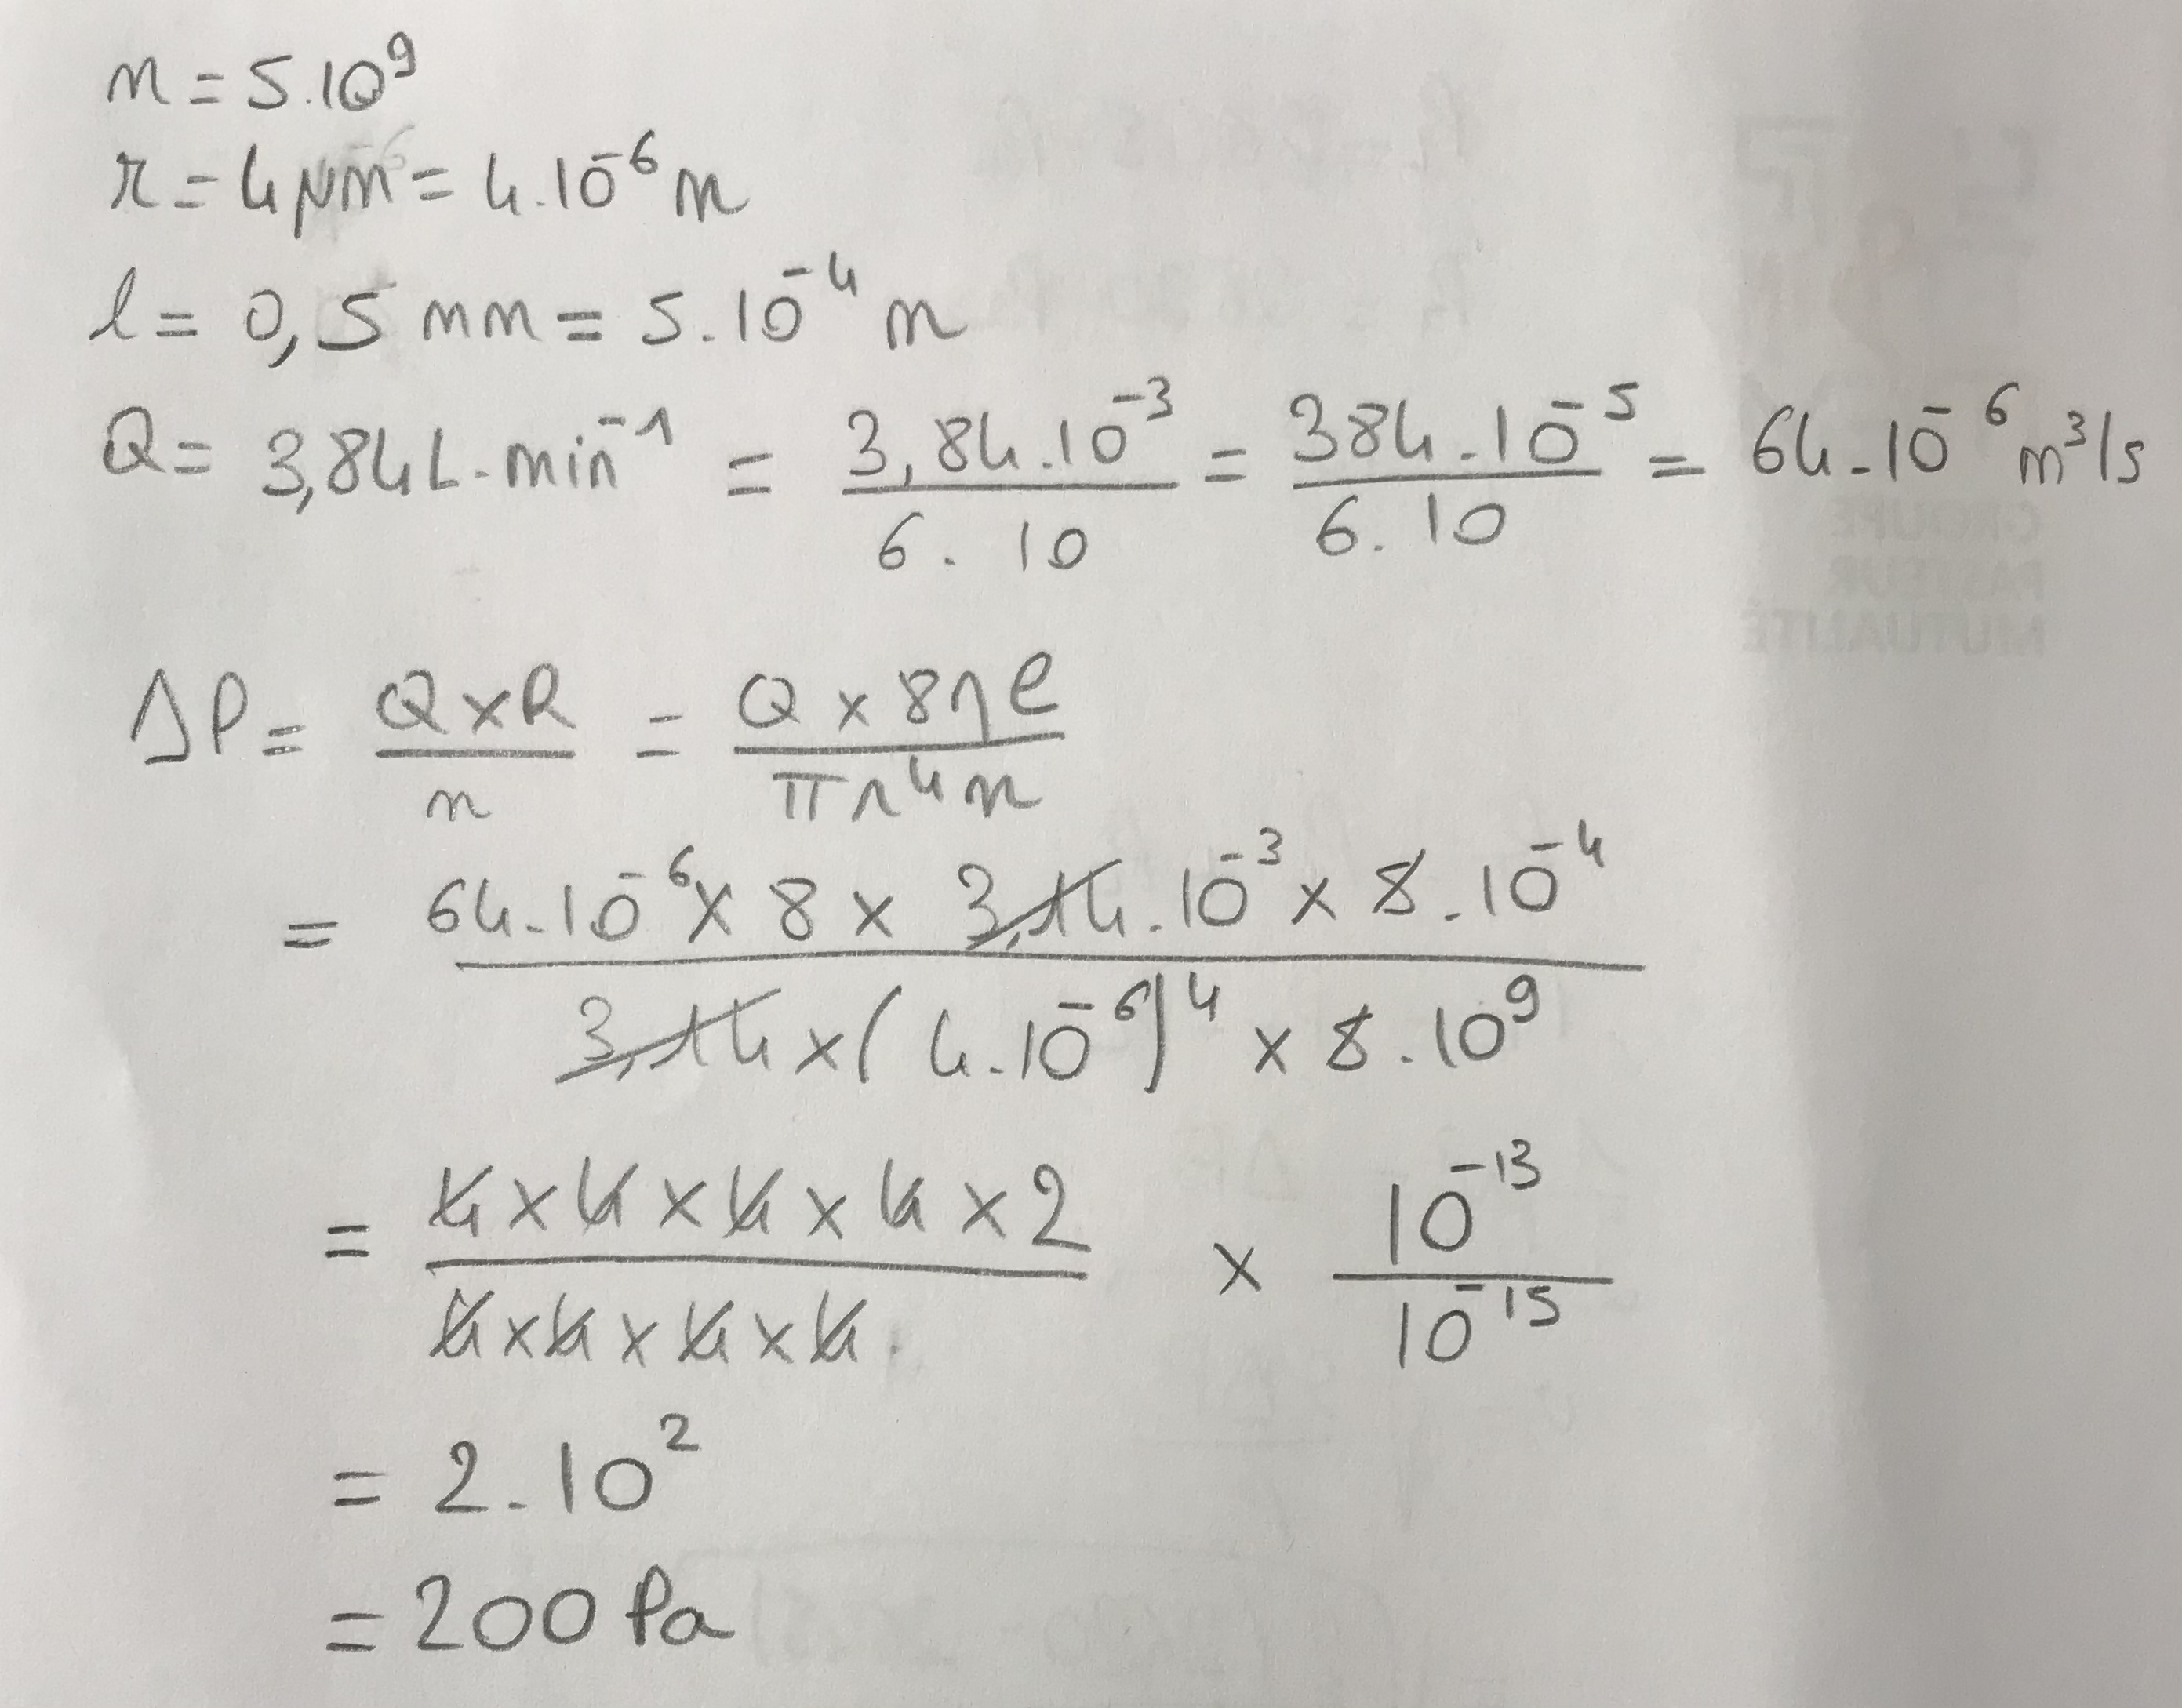 n = 5.10⁹
r = 4 µm = 4.10⁻⁶ m
l = 0,5 mm = 5.10⁻⁴ m
Q = 3,84 L.min⁻¹ = 3,84.10⁻³ / 6.10 = 384.10⁻⁵ / 6.10 = 64.10⁻⁶ m³/s
GROUPE
PASTEUR
MUTUALITÉ
ΔP = Q×R / n = Q × 8ηl / πr⁴n
= 64.10⁻⁶ × 8 × 3,14.10⁻³ × 5.10⁻⁴ / 3,14 × (4.10⁻⁶)⁴ × 5.10⁹
= 4 × 4 × 4 × 4 × 2 / 4 × 4 × 4 × 4 × 10⁻¹³ / 10⁻¹⁵
= 2.10²
= 200 Pa